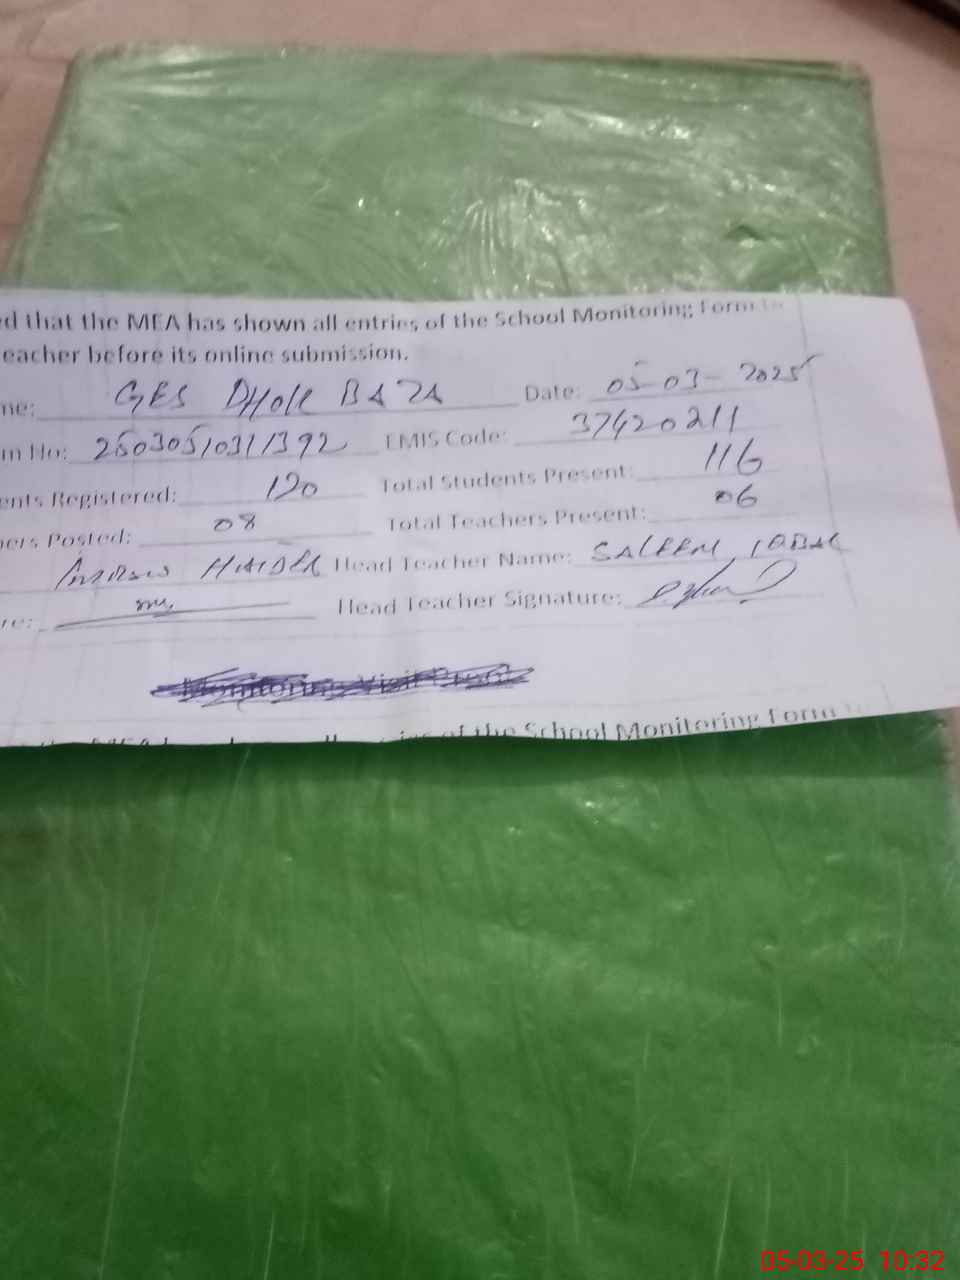 ed that the MEA has shown all entries of the School Monitoring Form to
eacher before its online submission.
me: GES DHOK BAZA Date: 05-03-2025
m No: 25030510311392 EMIS Code: 37420211
ents Registered: 120 Total Students Present: 116
hers Posted: 08 Total Teachers Present: 06
HAIDER Head Teacher Name: SALEEM IQBAL
re: Head Teacher Signature:
Monitoring Visit Proof
of the School Monitoring Form
05-03-25 10:32